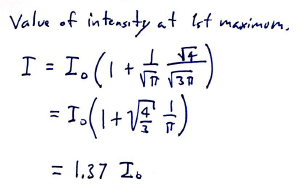 Value of intensity at 1st maximum.
I = I₀(1 + 1/√π √4/√3π)
= I₀(1 + √4/3 1/π)
= 1.37 I₀